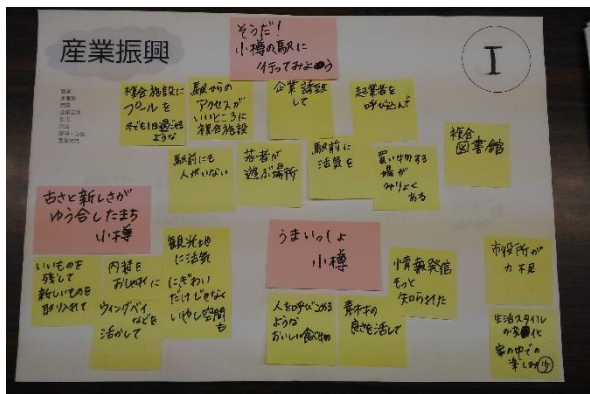 産業振興
I
そうだ!
小樽の駅に
行ってみよう
複合施設に
プールを
子ども1日過ごせる
ような
駅からの
アクセスが
いいところに
複合施設
企業誘致
して
起業者を
呼び込んで
複合
図書館
駅前にも
人がいない
若者が
遊ぶ場所
駅前に
活気を
買い物する
場が
みりょく
ある
古さと新しさが
ゆう合したまち
小樽
いいものを
残して
新しいものを
取り入れて
内装を
おしゃれに
ウィングベイ
などを
活かして
観光地
に活気
にぎわい
だけじゃなく
いやし空間
も
うまいっしょ
小樽
人を呼び込める
ような
おいしい食べ物
素材の
良さを活して
情報発信
もっと
知られた
市役所が
力不足
生活スタイル
が変化
家の中での
楽しみ